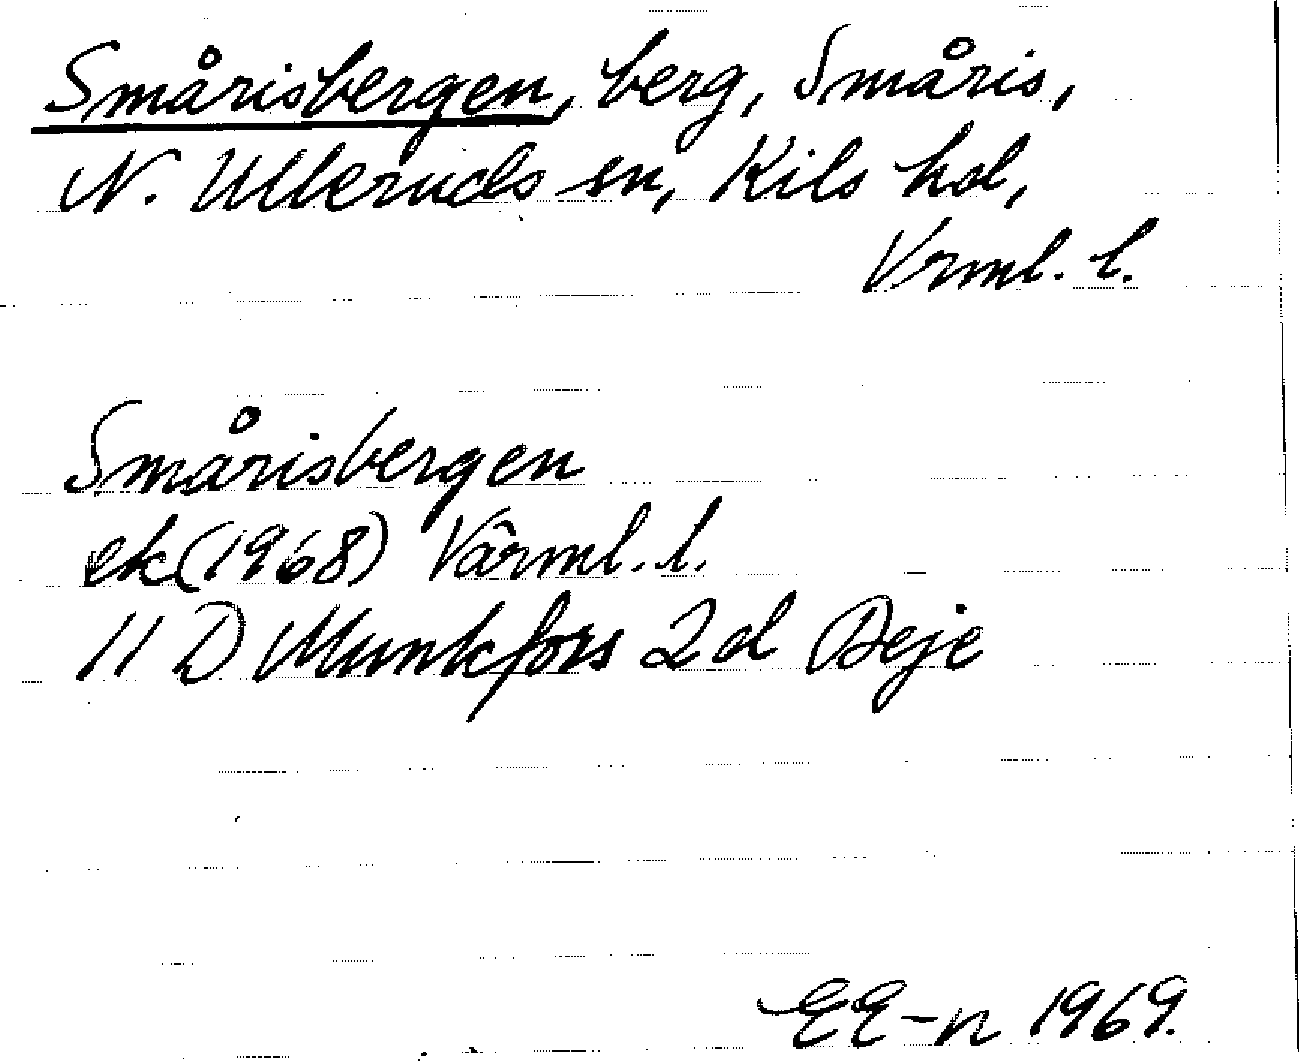 Smårisbergen, berg, Småris,
N. Ulleruds sn, Kils hd,
Vrml. l.
Smårisbergen
ek (1968) Värml. l.
11 D Munkfors 2d Deje
EE-n 1969.